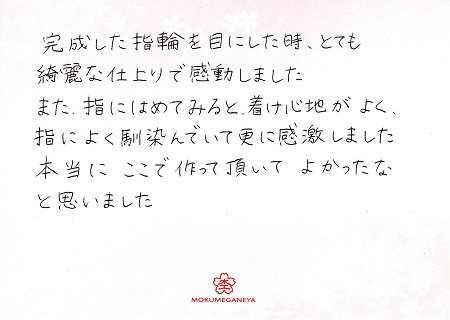 完成した指輪を目にした時、とても
綺麗な仕上りで感動しました
また、指にはめてみると、着け心地がよく、
指によく馴染んでいて更に感激しました
本当に ここで作って頂いて よかったな
と思いました
MOKUMEGANEYA